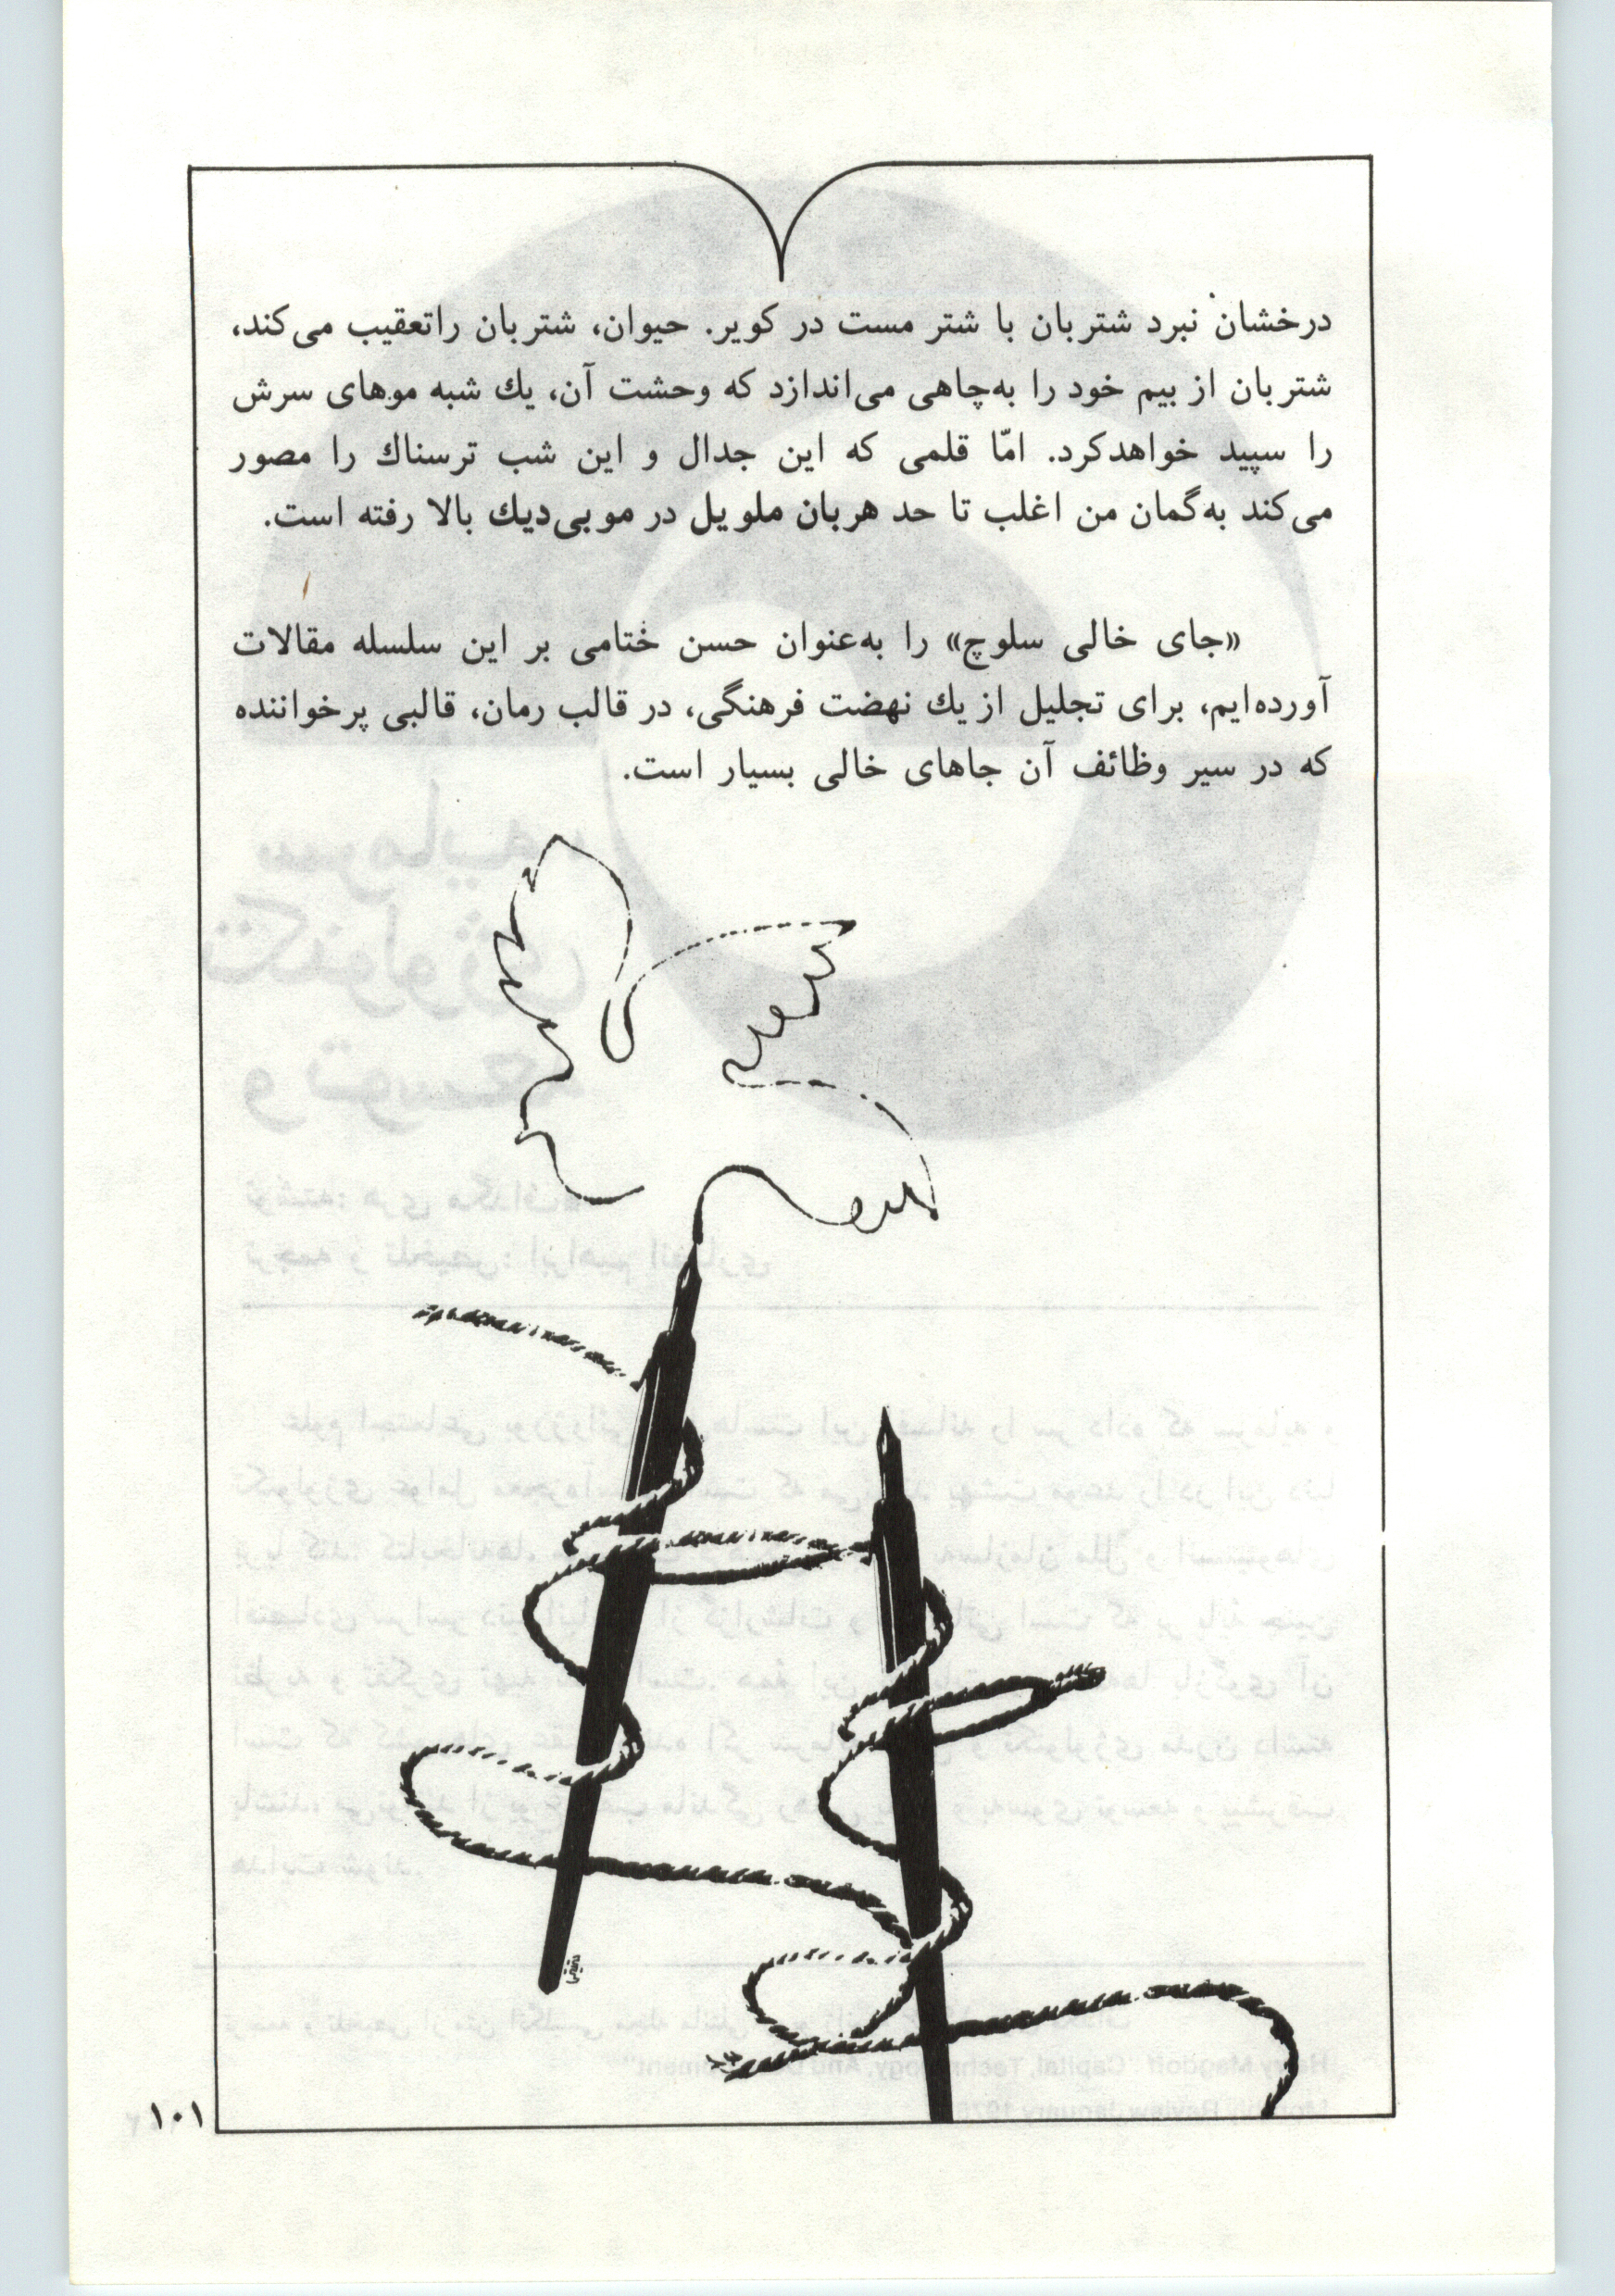 درخشان نبرد شتربان با شتر مست در کویر. حیوان، شتربان راتعقیب می‌کند،
شتربان از بیم خود را به‌چاهی می‌اندازد که وحشت آن، یك شبه موهای سرش
را سپید خواهدکرد. امّا قلمی که این جدال و این شب ترسناك را مصور
می‌کند به‌گمان من اغلب تا حد هربان ملویل در موبی‌دیك بالا رفته است.
«جای خالی سلوچ» را به‌عنوان حسن ختامی بر این سلسله مقالات
آورده‌ایم، برای تجلیل از یك نهضت فرهنگی، در قالب رمان، قالبی پرخواننده
که در سیر وظائف آن جاهای خالی بسیار است.
۱۰۱